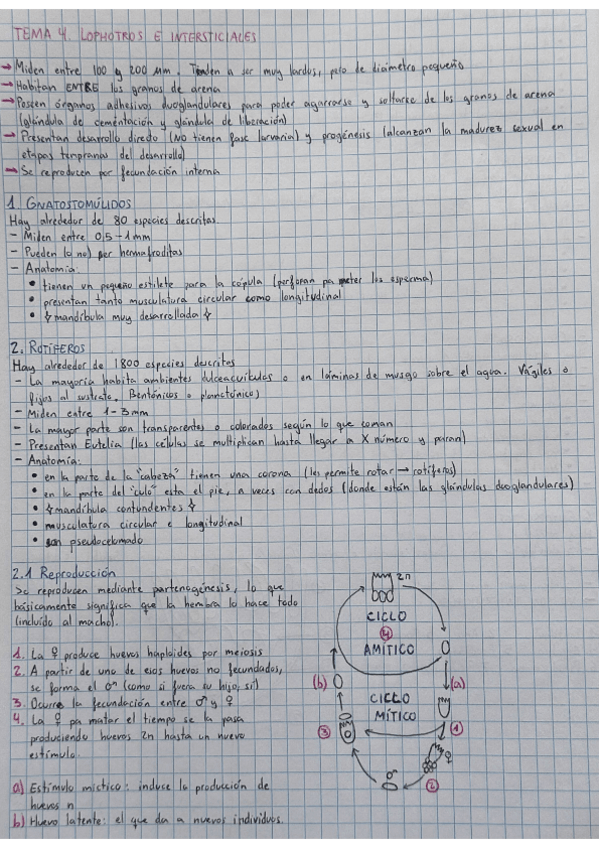 TEMA 4. LOPHOTROS E INTERSTICIALES
→ Miden entre 100 y 200 µm. Tienden a ser muy largos, pero de diámetro pequeño
→ Habitan ENTRE los granos de arena
→ Poseen órganos adhesivos duoglandulares para poder agarrarse y soltarse de los granos de arena
(glándula de cementación y glándula de liberación)
→ Presentan desarrollo directo (NO tienen fase larvaria) y progénesis (alcanzan la madurez sexual en
etapas tempranas del desarrollo)
→ Se reproducen por fecundación interna
1. GNATOSTOMÚLIDOS
Hay alrededor de 80 especies descritas
- Miden entre 0,5-1mm
- Pueden (o no) ser hermafroditas
- Anatomía:
• tienen un pequeño estilete para la cópula (perforan pa meter los esperma)
• presentan tanto musculatura circular como longitudinal
• mandíbula muy desarrollada
2. ROTÍFEROS
Hay alrededor de 1800 especies descritas
- La mayoría habita ambientes dulceacuícolas o en láminas de musgo sobre el agua. Vágiles o
fijos al sustrato. Bentónicos o planctónico)
- Miden entre 1-3mm
- La mayor parte son transparentes o colorados según lo que coman
- Presentan Eutelia (las células se multiplican hasta llegar a X número y paran)
- Anatomía:
• en la parte de la "cabeza" tienen una corona (les permite rotar → rotíferos)
• en la parte del "culo" esta el pie, a veces con dedos (donde están las glándulas duoglandulares)
• mandíbula contundentes
• musculatura circular e longitudinal
• son pseudocelomado
2.1 Reproducción
Se reproducen mediante partenogénesis, lo que
básicamente significa que la hembra lo hace todo
(incluido al macho).
1. La ♀ produce huevos haploides por meiosis
2. A partir de uno de esos huevos no fecundados,
se forma el ♂ (como si fuera su hijo, si)
3. Ocurre la fecundación entre ♂ y ♀
4. La ♀ pa matar el tiempo se la pasa
produciendo huevos 2n hasta un nuevo
estímulo.
a) Estímulo mictico: induce la producción de
huevos n
b) Huevo latente: el que da a nuevos individuos.
2n
CICLO
4
AMÍTICO
(b)
(a)
CICLO
MÍTICO
3
1
♀
♂
2